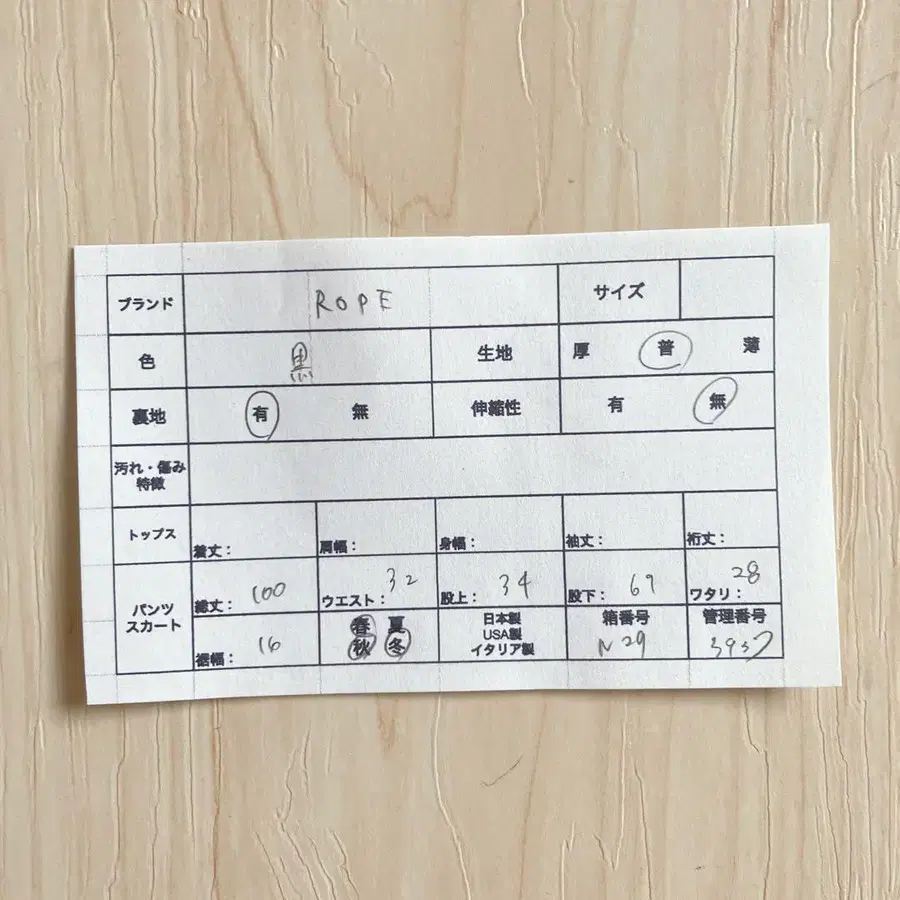 ブランド ROPE サイズ
色 黒 生地 厚 普 薄
裏地 有 無 伸縮性 有 無
汚れ・傷み
特徴
トップス 着丈： 肩幅： 身幅： 袖丈： 裄丈：
パンツ
スカート
総丈： 100 ウエスト： 32 股上： 34 股下： 67 ワタリ： 28
裾幅： 16
春 夏
秋 冬
日本製
USA製
イタリア製
箱番号
N29
管理番号
3937